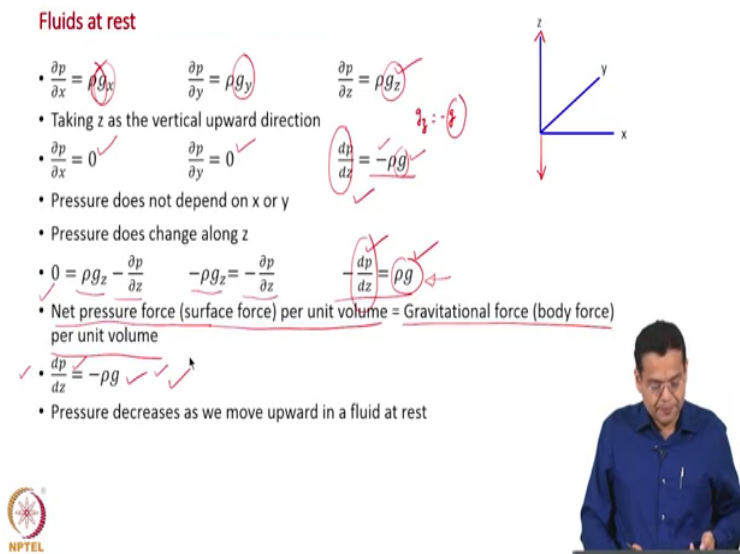 Fluids at rest
z
• ∂p/∂x = ρgₓ ∂p/∂y = ρg_y ∂p/∂z = ρg_z
y
• Taking z as the vertical upward direction
g_z = -g
• ∂p/∂x = 0 ∂p/∂y = 0 dp/dz = −ρg
x
• Pressure does not depend on x or y
• Pressure does change along z
• 0 = ρg_z − ∂p/∂z −ρg_z = − ∂p/∂z − dp/dz = ρg
• Net pressure force (surface force) per unit volume = Gravitational force (body force)
per unit volume
• dp/dz = −ρg
• Pressure decreases as we move upward in a fluid at rest
NPTEL